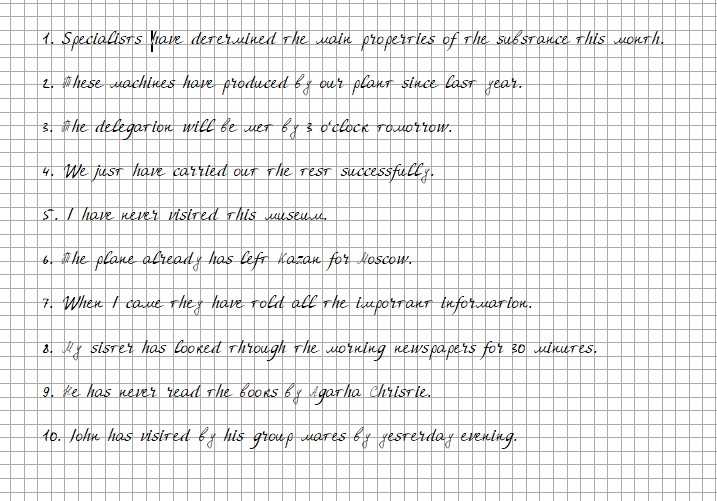 1. Specialists have determined the main properties of the substance this month.
2. These machines have produced by our plant since last year.
3. The delegation will be met by 3 o'clock tomorrow.
4. We just have carried out the test successfully.
5. I have never visited this museum.
6. The plane already has left Kazan for Moscow.
7. When I came they have told all the important information.
8. My sister has looked through the morning newspapers for 30 minutes.
9. He has never read the books by Agatha Christie.
10. John has visited by his group mates by yesterday evening.